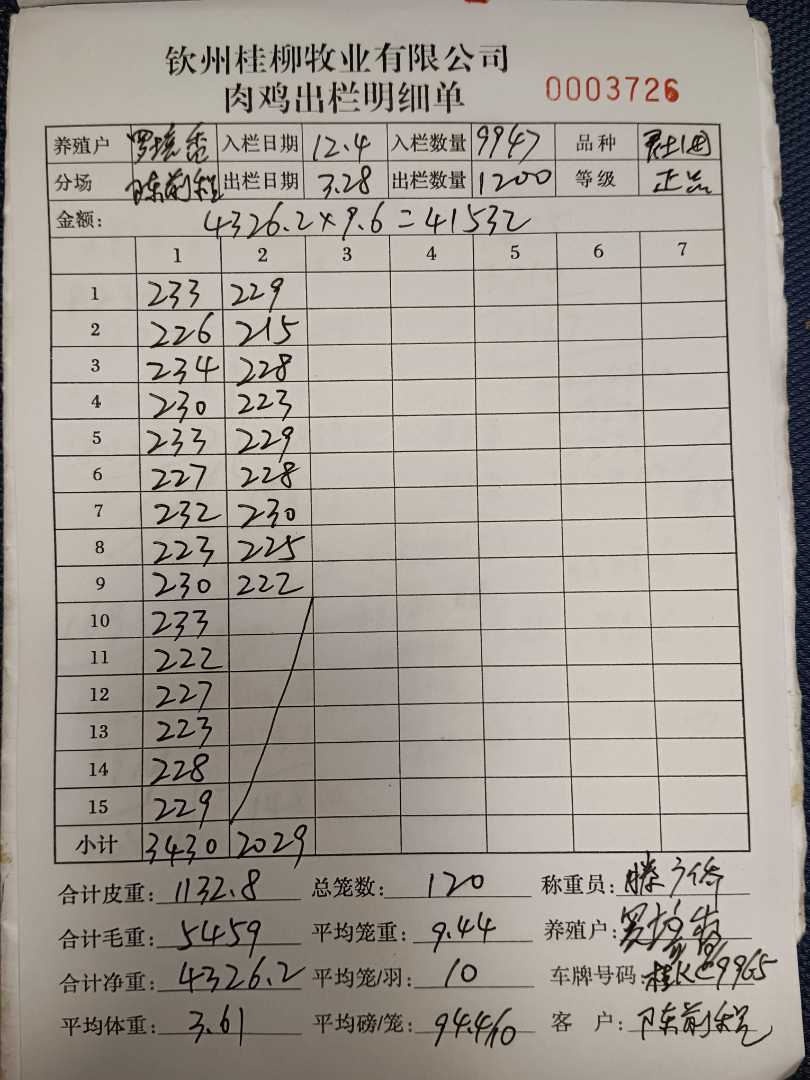 钦州桂柳牧业有限公司
肉鸡出栏明细单 0003726
养殖户 罗培 入栏日期 12.4 入栏数量 9947 品种
分场 陈前程 出栏日期 3.28 出栏数量 1200 等级 正品
金额: 4326.2×9.6=41532
1 2 3 4 5 6 7
1 233 229
2 226 215
3 234 228
4 230 223
5 233 229
6 227 228
7 232 230
8 223 225
9 230 222
10 233
11 222
12 227
13 223
14 228
15 229
小计 3430 2029
合计皮重: 1132.8 总笼数: 120 称重员: 滕
合计毛重: 5459 平均笼重: 9.44 养殖户: 罗培
合计净重: 4326.2 平均笼/羽: 10 车牌号码: 桂K
平均体重: 3.61 平均磅/笼: 94.4/10 客 户: 陈前程